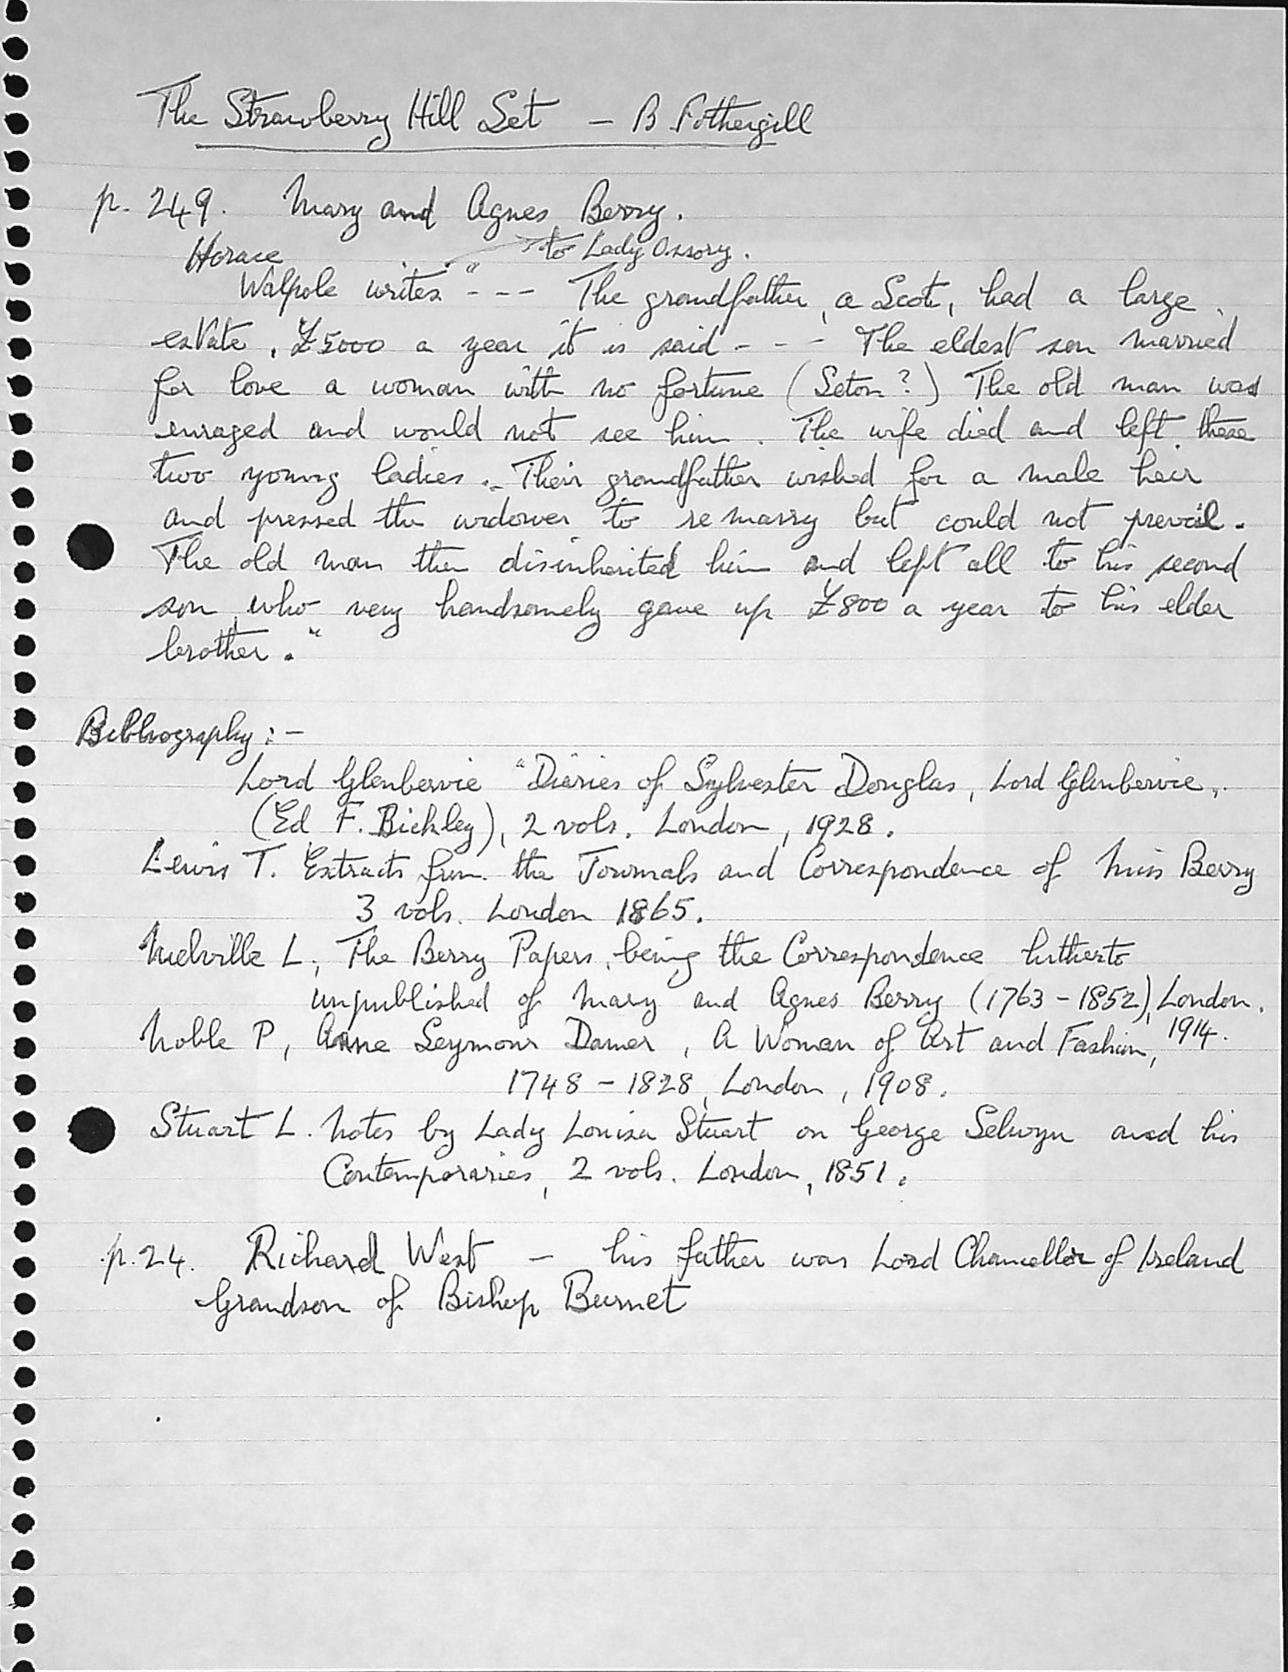 The Strawberry Hill Set - B Fothergill
p. 249. Mary and Agnes Berry.
Horace to Lady Ossory.
Walpole writes "--- The grandfather, a Scot, had a large
estate, £5000 a year it is said - - - The eldest son married
for love a woman with no fortune (Seton?) The old man was
enraged and would not see him. The wife died and left these
two young ladies. Their grandfather wished for a male heir
and pressed the widower to remarry but could not prevail.
The old man then disinherited him and left all to his second
son who very handsomely gave up £800 a year to his elder
brother."
Bibliography:-
Lord Glenbervie "Diaries of Sylvester Douglas, Lord Glenbervie,
(Ed F. Bickley), 2 vols. London, 1928.
Lewis T. Extracts from the Journals and Correspondence of Miss Berry
3 vols. London 1865.
Melville L, The Berry Papers, being the Correspondence hitherto
unpublished of Mary and Agnes Berry (1763-1852), London.
1914.
Noble P, Anne Seymour Damer, A Woman of Art and Fashion,
1748-1828, London, 1908.
Stuart L. Notes by Lady Louisa Stuart on George Selwyn and his
Contemporaries, 2 vols. London, 1851.
p. 24. Richard West - his father was Lord Chancellor of Ireland
Grandson of Bishop Burnet